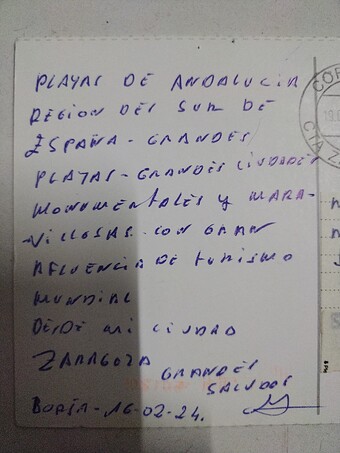 PLAYAS DE ANDALUCIA
REGION DEL SUR DE
ESPAÑA - GRANDES
PLAYAS - GRANDES CIUDADES
MONUMENTALES Y MARA-
VILLOSAS - CON GRAN
AFLUENCIA DE TURISMO
MUNDIAL
DESDE MI CIUDAD
ZARAGOZA GRANDES
SALUDOS
BORJA - 16-02-24.
COR
CTA Z